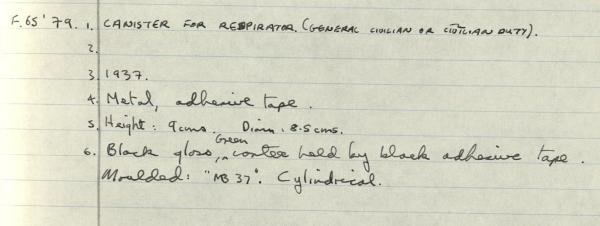 F.65'79. 1. CANISTER FOR RESPIRATOR. (GENERAL CIVILIAN OR CIVILIAN DUTY).
2.
3. 1937.
4. Metal, adhesive tape.
5. Height: 9cms. Diam: 8.5cms.
6. Black gloss, Green centre held by black adhesive tape.
Moulded: "MB 37". Cylindrical.